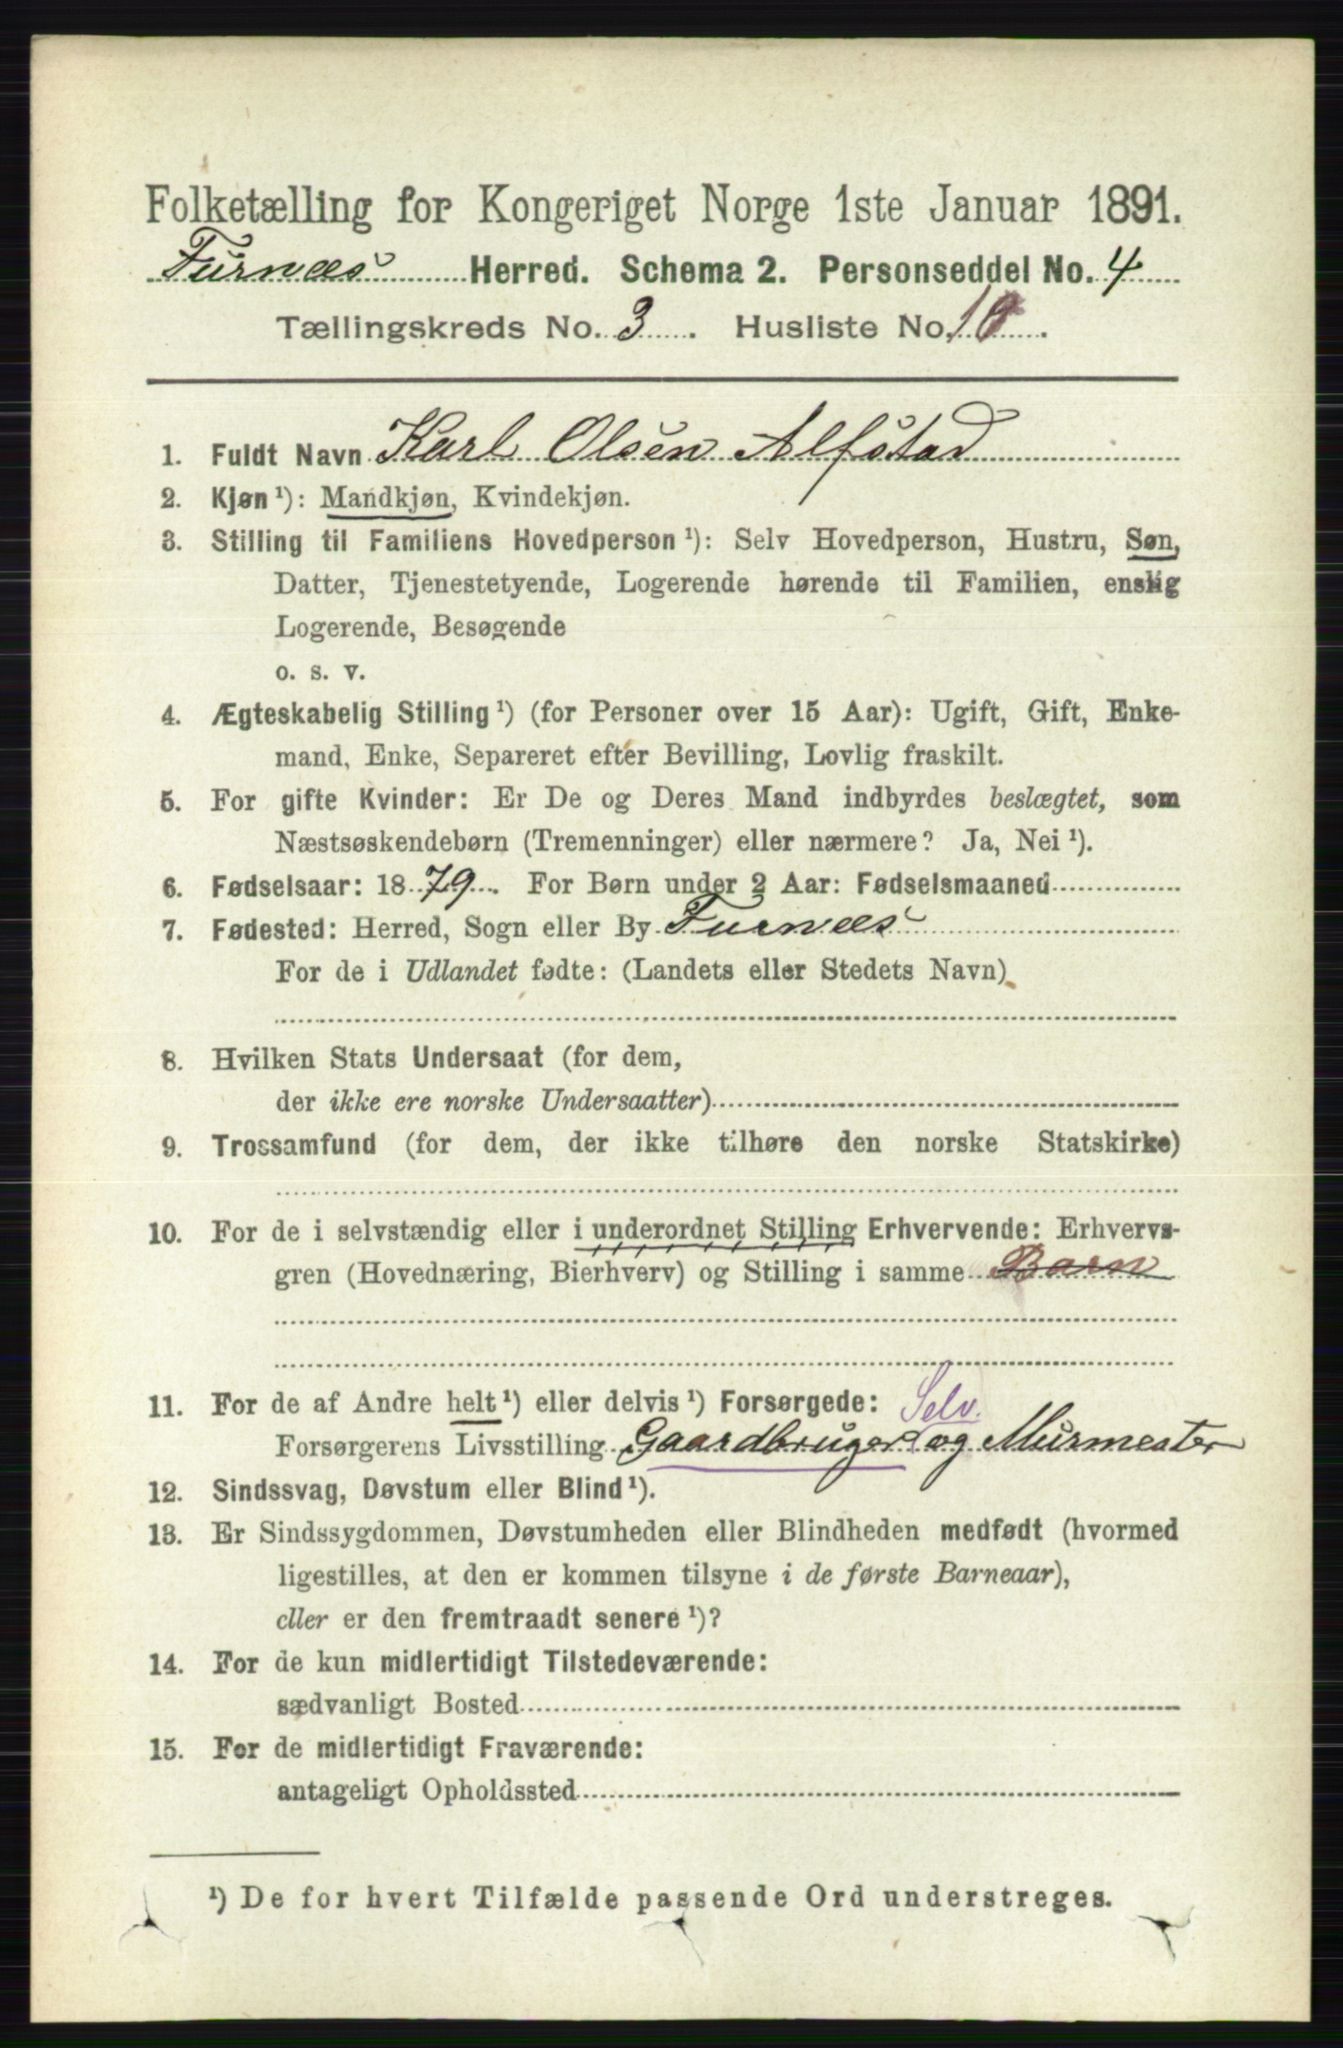 Folketælling for Kongeriget Norge 1ste Januar 1891.
Furnæs Herred. Schema 2. Personseddel No. 4
Tællingskreds No. 3. Husliste No. 10.
1. Fuldt Navn Karl Olsen Alfstad
2. Kjøn ¹): Mandkjøn, Kvindekjøn.
3. Stilling til Familiens Hovedperson ¹): Selv Hovedperson, Hustru, Søn,
Datter, Tjenestetyende, Logerende hørende til Familien, enslig
Logerende, Besøgende
o. s. v.
4. Ægteskabelig Stilling ¹) (for Personer over 15 Aar): Ugift, Gift, Enke-
mand, Enke, Separeret efter Bevilling, Lovlig fraskilt.
5. For gifte Kvinder: Er De og Deres Mand indbyrdes beslægtet, som
Næstsøskendebørn (Tremenninger) eller nærmere? Ja, Nei ¹).
6. Fødselsaar: 1879. For Børn under 2 Aar: Fødselsmaaned
7. Fødested: Herred, Sogn eller By Furnæs
For de i Udlandet fødte: (Landets eller Stedets Navn)
8. Hvilken Stats Undersaat (for dem,
der ikke ere norske Undersaatter)
9. Trossamfund (for dem, der ikke tilhøre den norske Statskirke)
10. For de i selvstændig eller i underordnet Stilling Erhvervende: Erhvervs-
gren (Hovednæring, Bierhverv) og Stilling i samme Barn
11. For de af Andre helt ¹) eller delvis ¹) Forsørgede: Selv.
Forsørgerens Livsstilling Gaardbruger og Murmester
12. Sindssvag, Døvstum eller Blind ¹).
13. Er Sindssygdommen, Døvstumheden eller Blindheden medfødt (hvormed
ligestilles, at den er kommen tilsyne i de første Barneaar),
eller er den fremtraadt senere ¹)?
14. For de kun midlertidigt Tilstedeværende:
sædvanligt Bosted
15. For de midlertidigt Fraværende:
antageligt Opholdssted
¹) De for hvert Tilfælde passende Ord understreges.